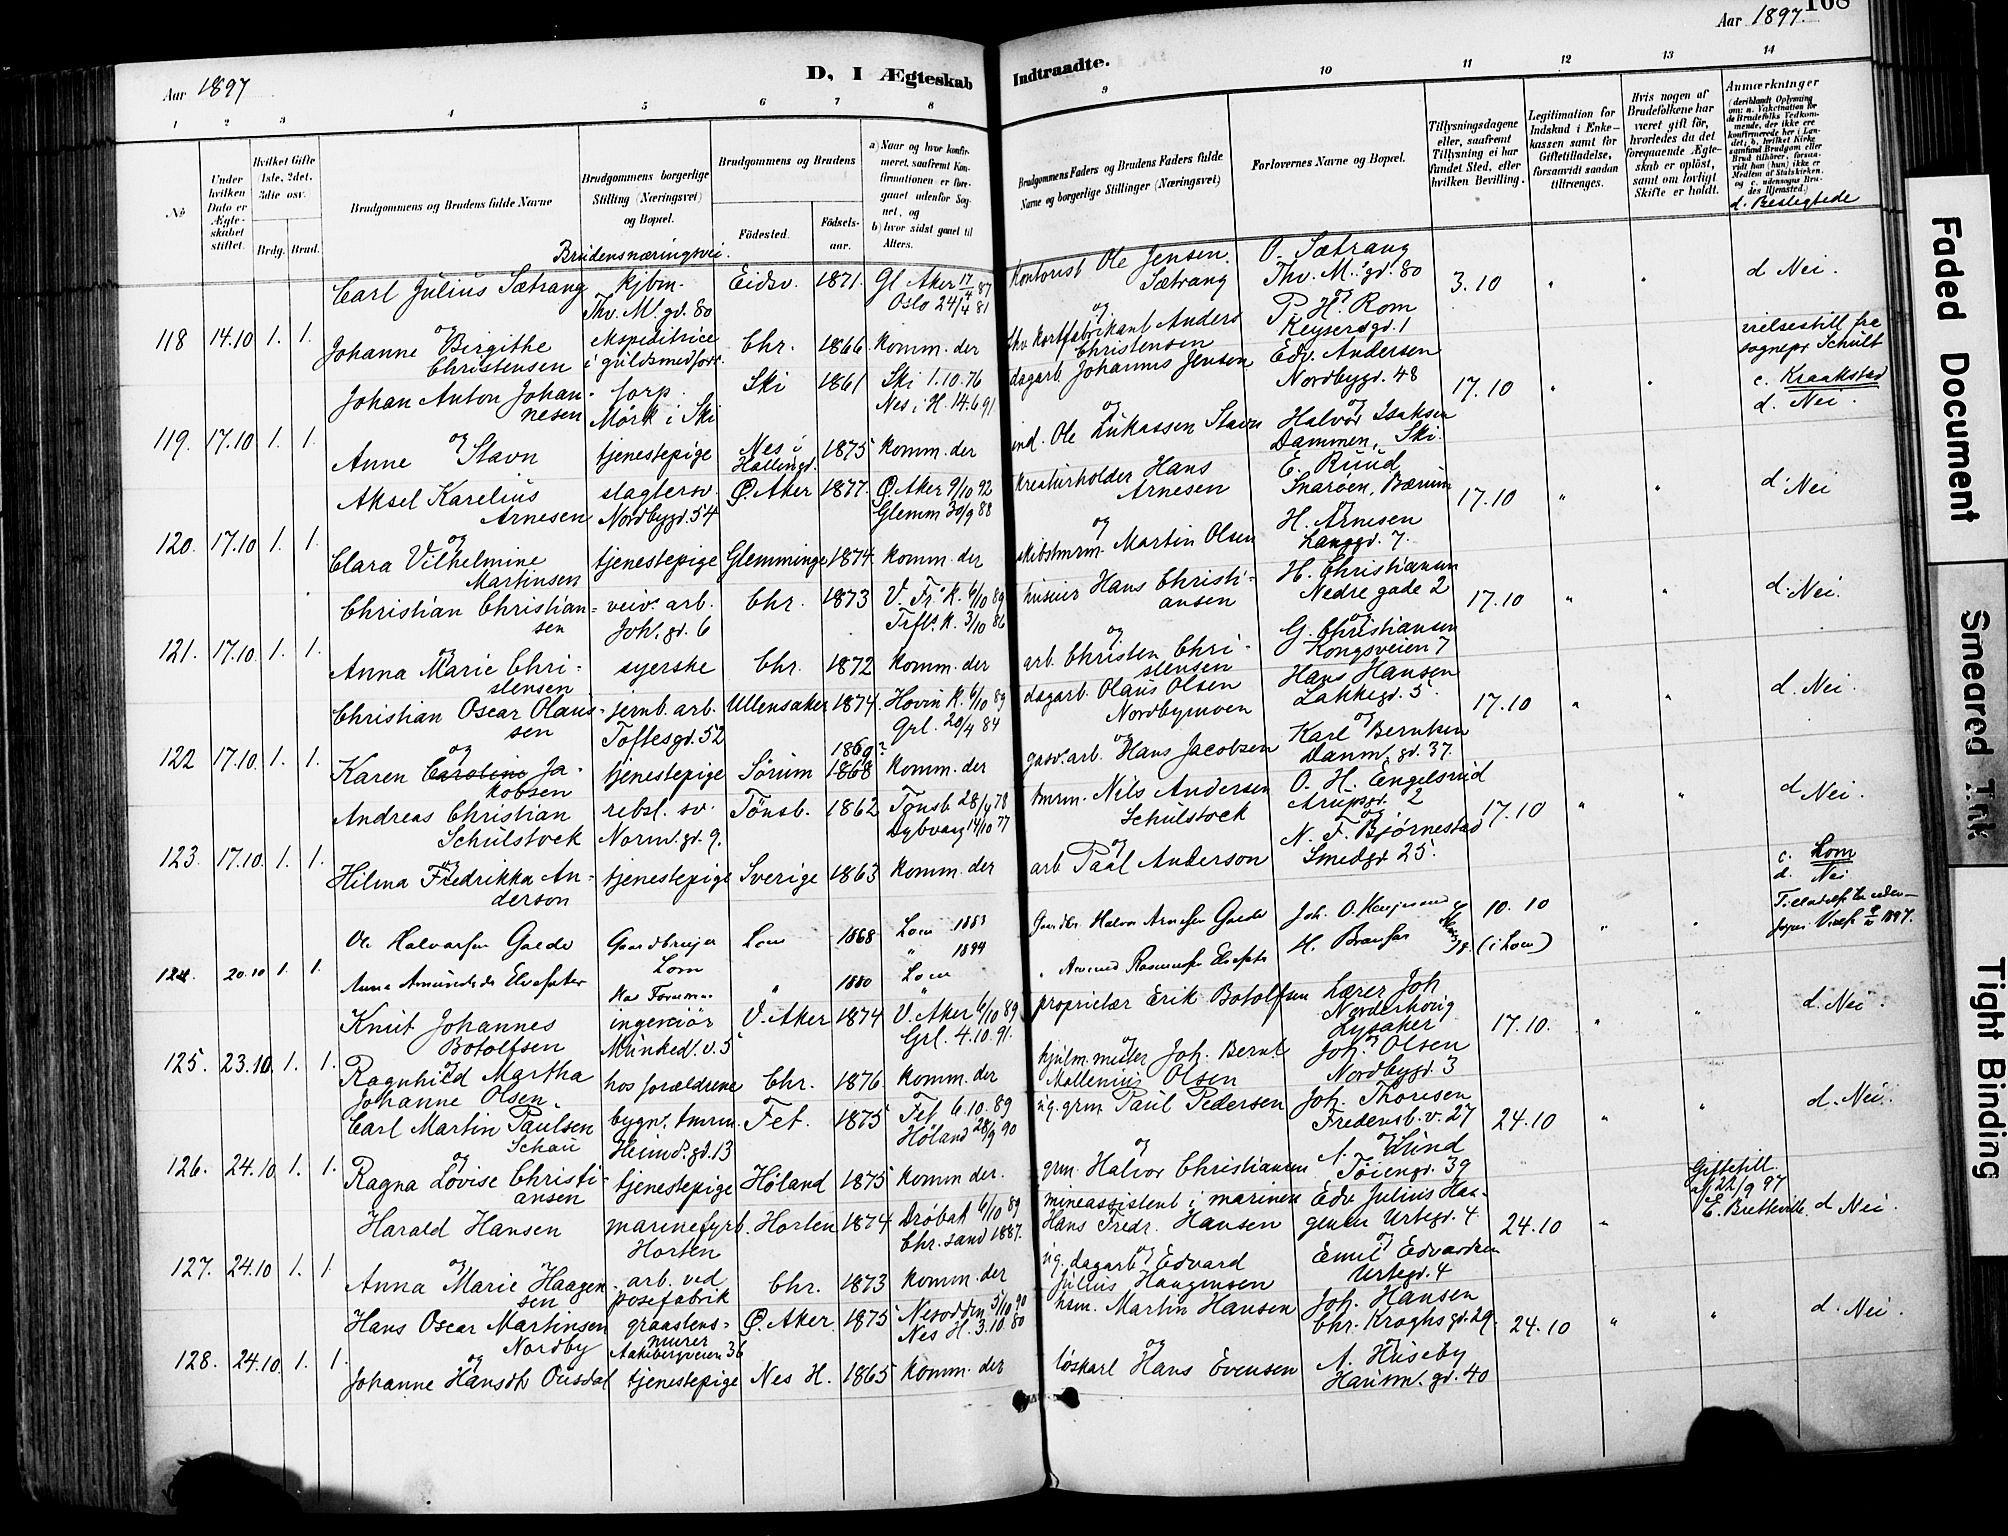 Aar 1897
D, I Ægteskab Indtraadte.
Aar 1897. 168
1 2 3 4 5 6 7 8 9 10 11 12 13 14
No
Under hvilken Dato er Ægteskabet stiftet.
Hvilket Gifte 1ste, 2det, 3die osv.
Brdg. Brud.
Brudgommens og Brudens fulde Navne
Brudgommens borgerlige Stilling (Næringsvei) og Bopæl.
Brudens næringsvei.
Brudgommens og Brudens
Födested. Födsels-aar.
a) Naar og hvor konfirmeret, saafremt Konfirmationen er foregaaet udenfor Sognet, og
b) hvor sidst gaaet til Alters.
Brudgommens Faders og Brudens Faders fulde Navne og borgerlige Stillinger (Næringsvei)
Forlovernes Navne og Bopæl.
Tillysningsdagene eller, saafremt Tillysning ei har fundet Sted, efter hvilken Bevilling.
Legitimation for Indskud i Enkekassen samt for Giftetilladelse, forsaavidt saadan tiltrænges.
Hvis nogen af Brudefolkene har været gift før, hvorledes da det foregaaende Ægteskab er oplöst, samt om lovligt Skifte er holdt.
Anmærkninger
(deriblandt Oplysning om: a. Vakcination for de Brudefolks Vedkommende, der ikke ere konfirmerede her i Landet; b. hvilket Kirkesamfund Brudgom eller Brud tilhörer, forsaavidt han (hun) ikke er Medlem af Statskirken, og c. udensogns Brudes Hjemsted.)
d. Beslegtede
118 14.10 1. 1. Carl Julius Sætrang kjbm. Thv. M. gd. 80 Eidsv. 1871. Gl Aker 17/4 87 Oslo 24/4 81 kontorist Ole Jensen Sætrang O. Sætrang Thv. M. gd. 80 3.10 " " d Nei.
og
Johanne Birgithe Christensen ekspeditrice i guldsmedforr. Chr. 1866 komm. der skv. Kortfabrikant Anders Christensen P. H. Rom Keysersgd. 1 vielsestill fra sognepr Schult
119. 17.10 1. 1. Johan Anton Johannesen forp. Mörk i Ski Ski 1861 Ski 1.10.76 Nes i H. 14.6 91 dagarb. Johannes Jensen Edv. Andersen Nordbygd. 48 17.10 " " c. Kraakstad d. Nei.
og
Anne Stavn tjenestepige Nes i Hallingd. 1875 komm. der ind. Ole Lukassen Stavn Halvor Isaksen Dammen, Ski.
120. 17.10 1. 1. Aksel Karelius Arnesen slagtersv. Nordbygd. 54 Ø. Aker 1877. Ø. Aker 9/10 92 Glemm 30/9 88 kreaturholder Hans Arnesen E. Ruud Snaröen, Bærum 17.10 " " d. Nei
og
Clara Vilhelmine Martinsen tjenestepige Glemminge 1874. komm. der skibstmrm. Martin Olsen H. Arnesen Langgd. 7.
121. 17.10. 1. 1. Christian Christiansen veiv. arb. Joh. gd. 6 Chr. 1873 V. Fr. K. 6/10 89 Trfl. K. 3/10 86 huseier Hans Christiansen H. Christiansen Nedre gade 2 17.10 " " d. Nei.
og
Anna Marie Christensen syerske Chr. 1872 komm. der arb. Christen Christensen G. Christiansen Kongsveien 7
122 17.10. 1. 1. Christian Oscar Olaussen jernb. arb. Toftesgd. 52 Ullensaker 1874. Hovin K. 6/10 89 Grl. 20/4 84 dagarb. Olaus Olsen Nordbymoen Hans Hansen Lakkegd. 5. 17.10 " " d. Nei.
og
Karen Caroline Jakobsen tjenestepige Sörum 1869? 1868 komm. der gasv. arb. Hans Jacobsen Karl Berntsen Danm. gd. 37.
123. 17.10. 1. 1. Andreas Christian Schulstock rebsl. sv. Norm. gd. 9. Tönsb. 1862 Tönsb 28/4 78 Dybvaag 14/10 77 tmrm. Nils Andersen Schulstock O. H. Engelsrud Arupsgd. 2 17.10 " " d Nei.
og
Hilma Fredrikka Anderson tjenestepige Sverige 1863 komm. der arb. Paal Anderson N. F. Björnestad Smedgd 25.
124. 20.10 1. 1. Ole Halvorsen Galde Gaardbruger Lom Lom 1868 Lom 1883 Gaardbr. Halvor Arnesen Galde Joh. O. 10.10 (i Lom) " " c. Lom d. Nei
Anna Amundsdr. 1880 Lom 1894 Amund H.
125. 23.10. 1. 1. Knut Johannes Botolfsen ingeniör Munked. v. 5 V. Aker 1874 V. Aker 6/10 89 Grl. 4.10.91. proprietær Erik Botolfsen Lærer Joh Norderhoug Lysaker 17.10. " " d. Nei.
og
Ragnhild Martha Johanne Olsen hos forældrene Chr. 1876. komm. der hjulm. mester Joh. Bernt Mollenius Olsen Joh. Olsen Nordbygd. 3
126. 24.10. 1. 1. Carl Martin Paulsen Schau bygn. tmrm. Heimd. gd. 13 Fet. 1875 Fet 6.10.89 Höland 28/9 90 ug. grm Paul Pedersen Joh. Thoresen Fredensb. v. 27 24.10 " " d. Nei.
og
Ragna Lovise Christiansen tjenestepige Höland 1875 komm der. grm. Halvor Christiansen A. Lund Töiengd. 39
127. 24.10 1. 1. Harald Hansen marinefyrb. Horten Horten 1874 Dröbak 6/10 89 Chr. sand 1887. mineassistent i marinen Hans Fredr. Hansen Edv Julius Haagensen Urtegd. 4 24.10 " Giftetill. af 22/9 97 E. Brettville d Nei.
og
Anna Marie Haagensen arb. ved posefabrik Chr. 1873 komm. der ug. dagarb Edvard Julius Haagensen Emil Edvardsen Urtegd. 4
128. 24.10. 1. 1. Hans Oscar Martinsen Nordby graastensmurer Aakebergveien 36 Ø. Aker. 1875 Nesodden 5/10 90 Nes H. 3.10.80 hsm. Martin Hansen Joh. Hansen Chr. Kroghs gd. 29. 24.10 " " d. Nei.
og
Johanne Hansdtr Ousdal tjenestepige Nes H. 1865 komm. der löskarl Hans Evensen A. Huseby Hausm. gd. 40
Faded Document
Smeared Ink
Tight Binding